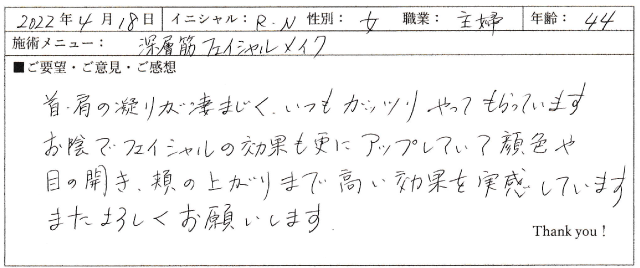 2022年4月18日 イニシャル：R.N 性別：女 職業：主婦 年齢：44
施術メニュー：深層筋フェイシャルメイク
■ご要望・ご意見・ご感想
首・肩の凝りが凄まじく、いつもガッツリやってもらっています
お陰でフェイシャルの効果も更にアップしていて顔色や
目の開き、頬の上がりまで高い効果を実感しています
またよろしくお願いします.
Thank you！